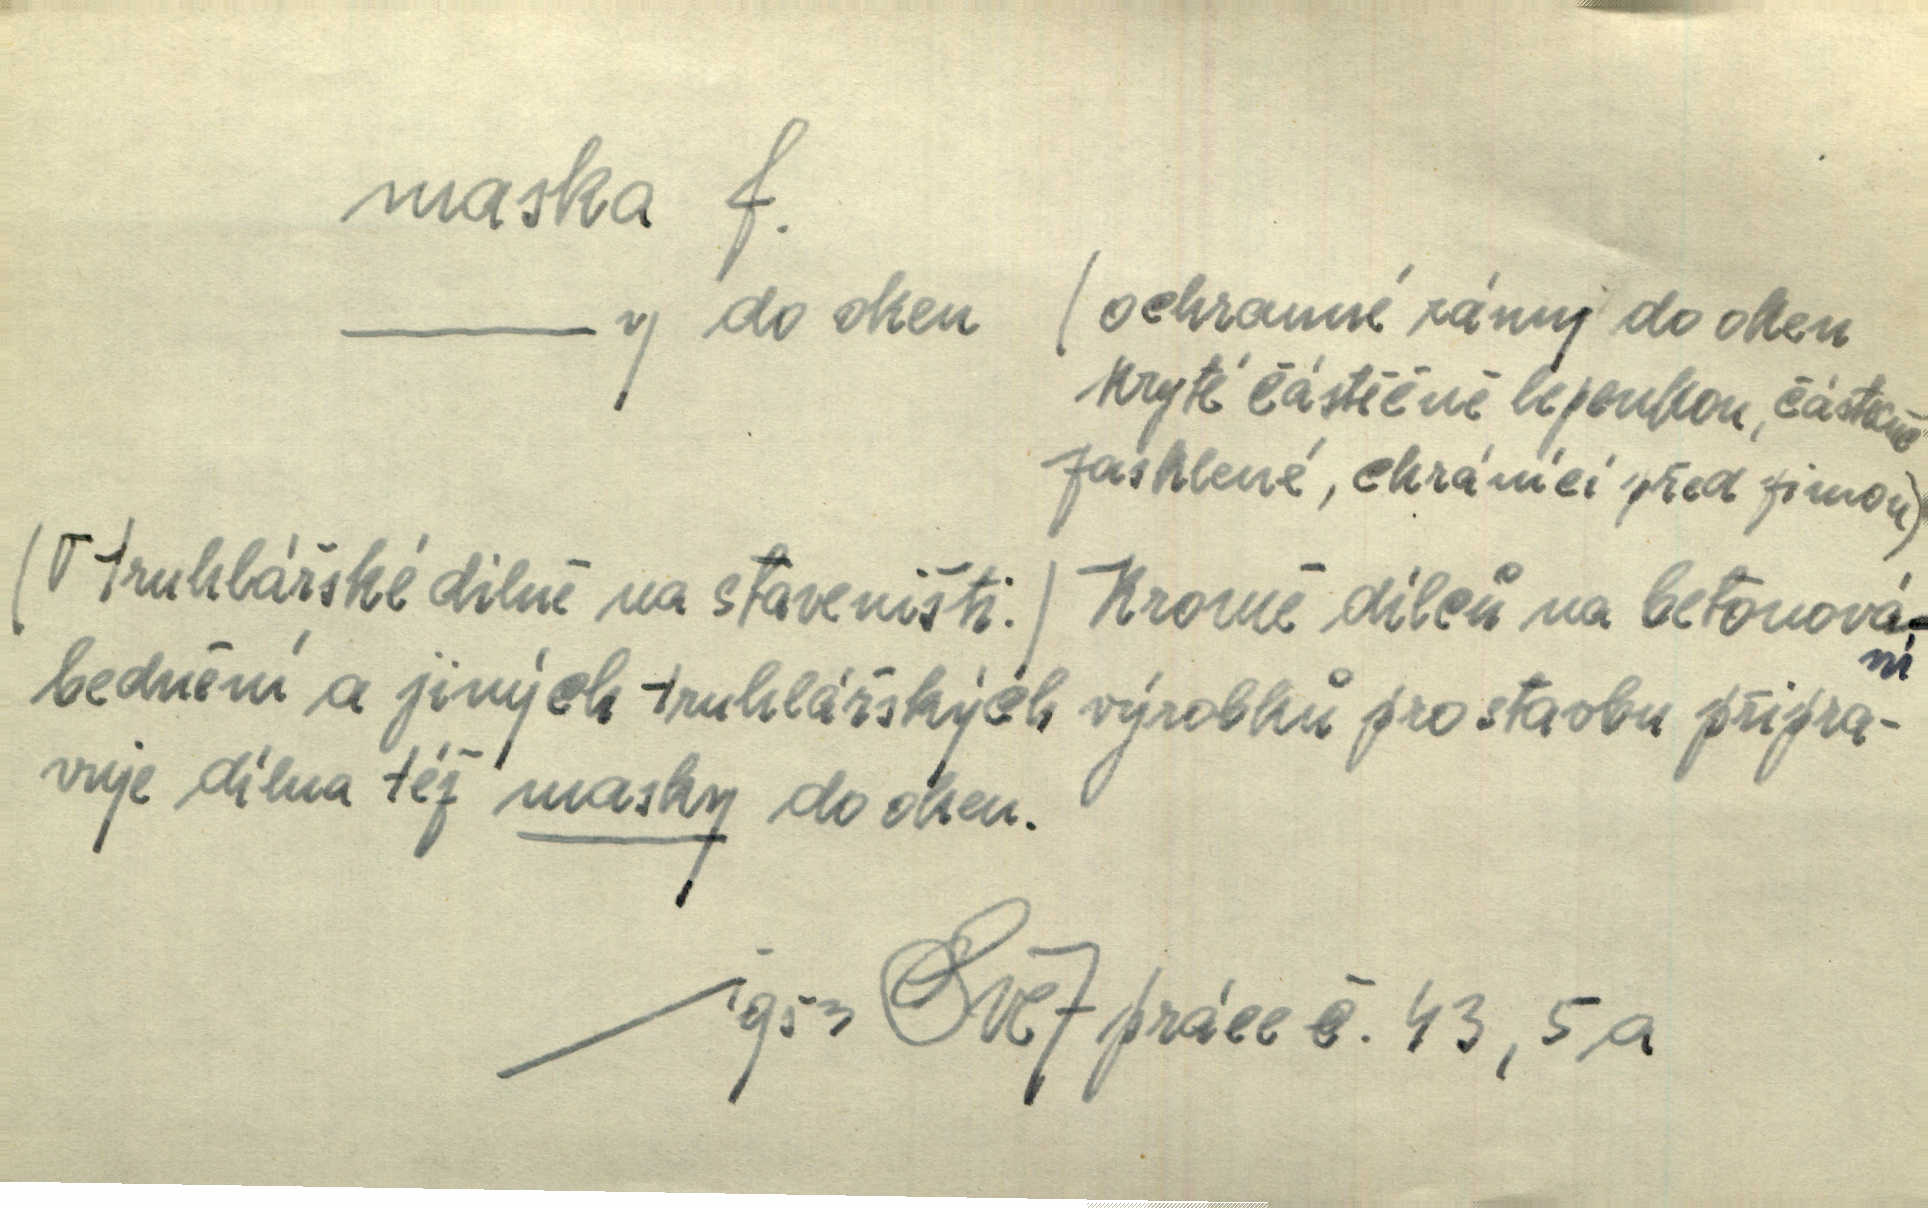 maska f.
——— y do oken (ochranné rámy do oken
kryté částěčně lepenkou, částečně
zasklené, chránící před zimou)
(V truhlářské dílně na staveništi.) Kromě dílců na betonová-
ní
bednění a jiných truhlářských výrobků pro stavbu připra-
vuje dílna též masky do oken.
Svět práce č. 43, 5a